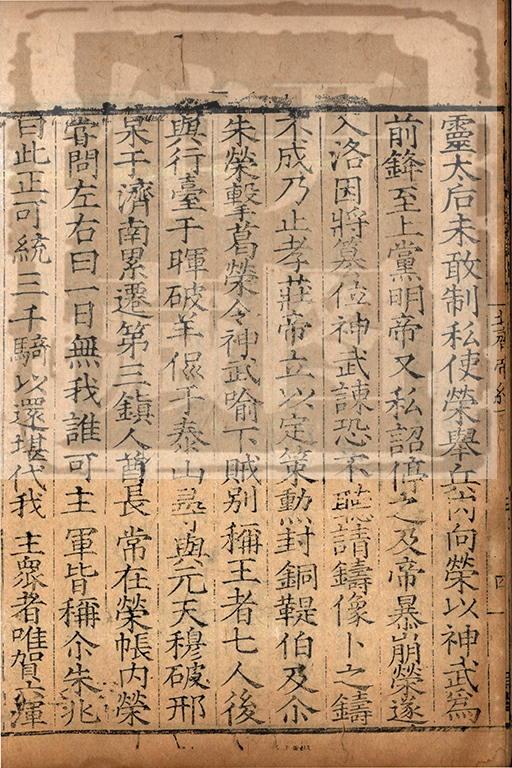 靈太后未敢制私使榮舉兵內向榮以神武爲
前鋒至上黨明帝又私詔停之及帝暴崩榮遂
入洛因將篡位神武諫恐不聽請鑄像卜之鑄
不成乃止孝莊帝立以定策勳封銅鞮伯及尒
朱榮擊葛榮令神武喻下賊别稱王者七人後
與行臺于暉破羊侃于泰山尋與元天穆破邢
杲于濟南累遷第三鎮人酋長常在榮帳内榮
甞問左右曰一日無我誰可主軍皆稱尒朱兆
曰此正可統三千騎以還堪代我主衆者唯賀六渾